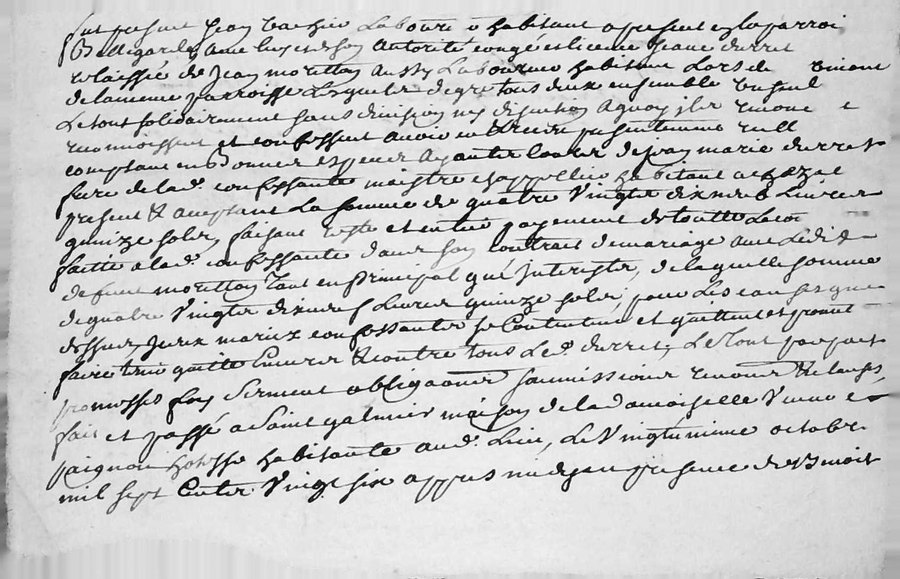 fut present Jean Vachier Laboure r habitant a present en la parroi
Bellegarde, avec luy et de son autorité congé et licence Jeane Derret
relaissée de Jean moretton aussy Laboureur habitant Lors de
de la meme parroisse Lesquels de gré tous deux ensemble un seul
Le tout solidairement sans division ny discution a quoy ils renonce e
reconnoissent et confessent avoir eu et receu presentement reell
comptant en de Jean marie Derret
frere de lad. confessante maistre chappellier habitant a
present & acceptant La somme de quatre Vingts dixneuf Livres
quinze sols, faisant reste et entier payement de toutte Leco
faitte a lad. confessante dans son contrait de mariage avec Ledit
defunt moretton tant en principal que interists, de laquelle somme
de quatre Vingts dixneuf Livres quinze sols, pour Les causes que
dessus, Iceux mariez confessants se Contentent et quittent et promet
faire tenir quitte Envers & contre tous Led. Derret, Le Tout par fait
promesses foy Serment obligaons soumissions renonc & clauses
fait et passé a Saint galmier maison de la damoiselle Veuve
paignon hotesse habitante aud. Lieu, Le Vingtunieme octobre
mil sept Cents Vingt six appres midy en presence de Benoit